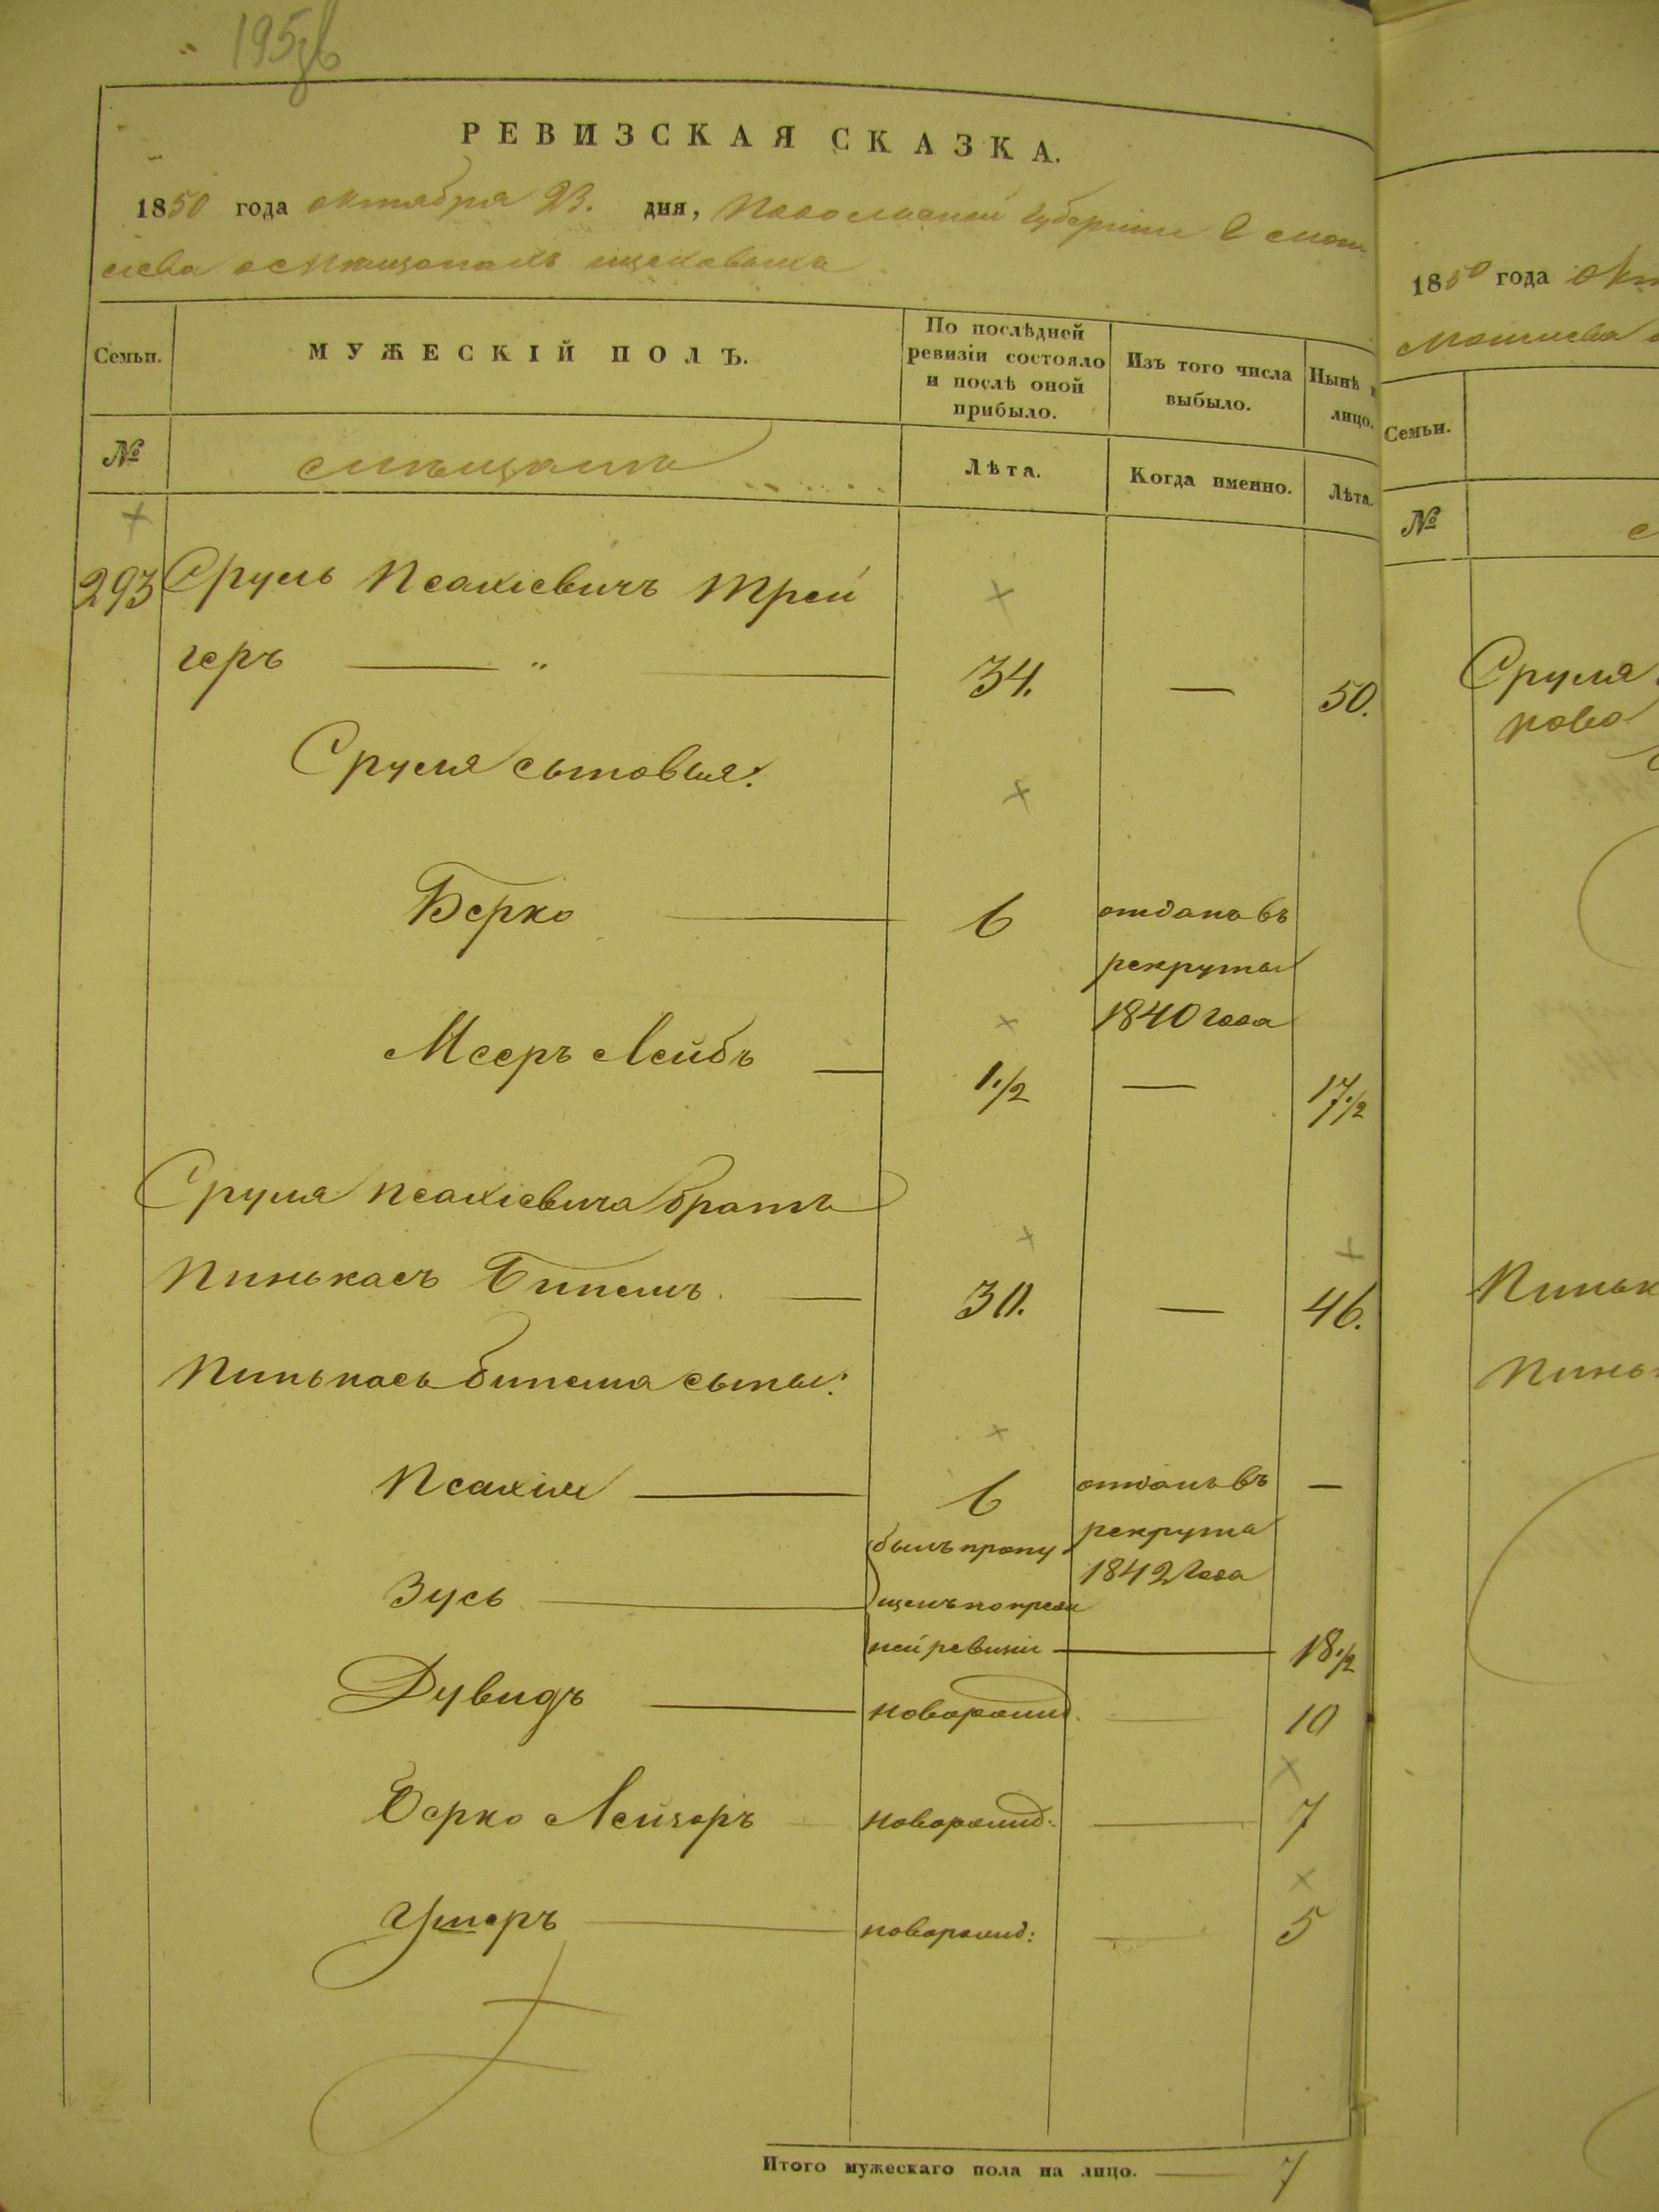 195
РЕВИЗСКАЯ СКАЗКА.
1850 года октября 23. дня, Подольской Губернии
Семьи.
МУЖЕСКІЙ ПОЛЪ.
По послѣдней ревизіи состояло и послѣ оной прибыло.
Изъ того числа выбыло.
Нынѣ
лицо.
№
Лѣта.
Когда именно.
Лѣта.
293 Сруль Псахіевичъ Трей
геръ 34. — 50.
Сруля сыновья:
Берко 6 отданъ въ
рекруты
1840 года
Мееръ Лейбъ 1 1/2 — 17 1/2
Сруля Псахіевича братъ
Пинькасъ Бинемъ 30. — 46.
Пинькасъ Бинема сыны:
Псахія 6 отданъ въ —
рекрута
1842 года
Зусь былъ пропу
щенъ по
ней ревизіи — 18 1/2
Дувидъ новорожд. — 10
Берко Лейзеръ новорожд: — 7
Ушеръ новорожд: — 5
Итого мужескаго пола на лицо. — 7
1850 года
Семьи.
№
Сруля
Пиньк
Пинь